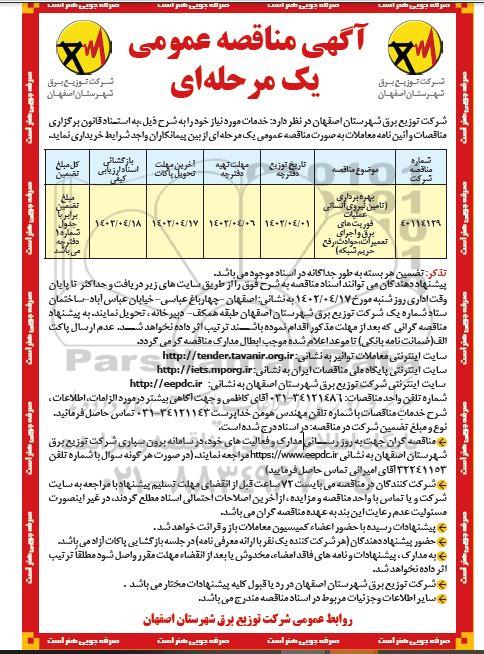 صرفه جویی هنر است صرفه جویی هنر است صرفه جویی هنر است صرفه جویی هنر است
آگهی مناقصه عمومی
یک مرحله‌ای
شرکت توزیع برق
شهرستان اصفهان
شرکت توزیع برق
شهرستان اصفهان
شرکت توزیع برق شهرستان اصفهان در نظر دارد: خدمات مورد نیاز خود را به شرح ذیل، به استناد قانون برگزاری
مناقصات و آئین نامه معاملات به صورت مناقصه عمومی یک مرحله ای از بین پیمانکاران واجد شرایط خریداری نماید.
شماره مناقصه شرکت
موضوع مناقصه
تاریخ توزیع دفترچه
مهلت تهیه دفترچه
آخرین مهلت تحویل پاکات
بازگشائی اسناد ارزیابی کیفی
کل مبلغ تضمین
۴۰۱۱۴۱۲۹
بهره برداری
(تامین نیروی انسانی
عملیات
فوریت های
برق و اجرای
تعمیرات، حوادث، رفع
حریم شبکه)
۱۴۰۲/۰۴/۰۱
۱۴۰۲/۰۴/۰۶
۱۴۰۲/۰۴/۱۷
۱۴۰۲/۰۴/۱۸
مبلغ
تضمین
برابر با
جدول
شماره ۱
دفترچه
می باشد
تذکر: تضمین هر بسته به طور جداگانه در اسناد موجود می باشد.
پیشنهاد دهندگان می توانند اسناد مناقصه به شرح فوق را از طریق سایت های زیر دریافت و حداکثر تا پایان
وقت اداری روز شنبه مورخ ۱۴۰۲/۰۴/۱۷ به نشانی: اصفهان - چهارباغ عباسی - خیابان عباس آباد - ساختمان
ستاد شماره یک شرکت توزیع برق شهرستان اصفهان طبقه همکف - دبیرخانه، تحویل نمایند. به پیشنهاد
مناقصه گرانی که بعد از مهلت مذکور اقدام نموده باشند ترتیب اثر داده نخواهد شد. عدم ارسال پاکت
الف (ضمانت نامه بانکی) تا موعد اعلام شده موجب ابطال مدارک مناقصه گر می گردد.
سایت اینترنتی معاملات توانیر به نشانی: http://tender.tavanir.org.ir
سایت اینترنتی پایگاه ملی مناقصات ایران به نشانی: http://iets.mporg.ir
سایت اینترنتی شرکت توزیع برق شهرستان اصفهان به نشانی: http://eepdc.ir
شماره تلفن واحد مناقصات: ۳۴۱۲۱۴۸۶-۰۳۱ آقای کاظمی و جهت آگاهی بیشتر در مورد الزامات، اطلاعات،
شرح خدمات مناقصات با شماره تلفن مهندس هومن خداپرست ۳۴۱۲۱۱۴۳-۰۳۱ تماس حاصل فرمایید.
نوع و مبلغ تضمین شرکت در مناقصه: در اسناد درج شده است.
مناقصه گران جهت به روز رسانی مدارک و فعالیت های خود، در سامانه برون سپاری شرکت توزیع برق
شهرستان اصفهان به نشانی https://www.eepdc.ir مراجعه نمایند، (در صورت هر گونه سوال با شماره تلفن
۳۲۲۴۱۱۵۳ آقای امیرانی تماس حاصل فرمایید)
شرکت کنندگان در مناقصه می بایست ۷۲ ساعت قبل از انقضای مهلت تسلیم پیشنهاد با مراجعه به سایت
شرکت و یا تماس با واحد مناقصه و مزایده، از آخرین اصلاحات احتمالی اسناد مطلع گردند، در غیر اینصورت
مسئولیت عدم رعایت این بند به عهده مناقصه گران می باشد.
پیشنهادات رسیده با حضور اعضاء کمیسیون معاملات باز و قرائت خواهد شد.
حضور پیشنهاد دهندگان (هر شرکت کننده یک نفر با ارائه معرفی نامه) در جلسه بازگشایی پاکات آزاد می باشد.
به مدارک، پیشنهادات و نامه های فاقد امضاء، مخدوش یا بعد از انقضاء مهلت مقرر واصل شود مطلقاً ترتیب
اثر داده نخواهد شد.
شرکت توزیع برق شهرستان اصفهان در رد یا قبول کلیه پیشنهادات مختار می باشد.
سایر اطلاعات و جزئیات مربوط در اسناد مناقصه مندرج می باشد.
روابط عمومی شرکت توزیع برق شهرستان اصفهان
صرفه جویی هنر است صرفه جویی هنر است صرفه جویی هنر است صرفه جویی هنر است